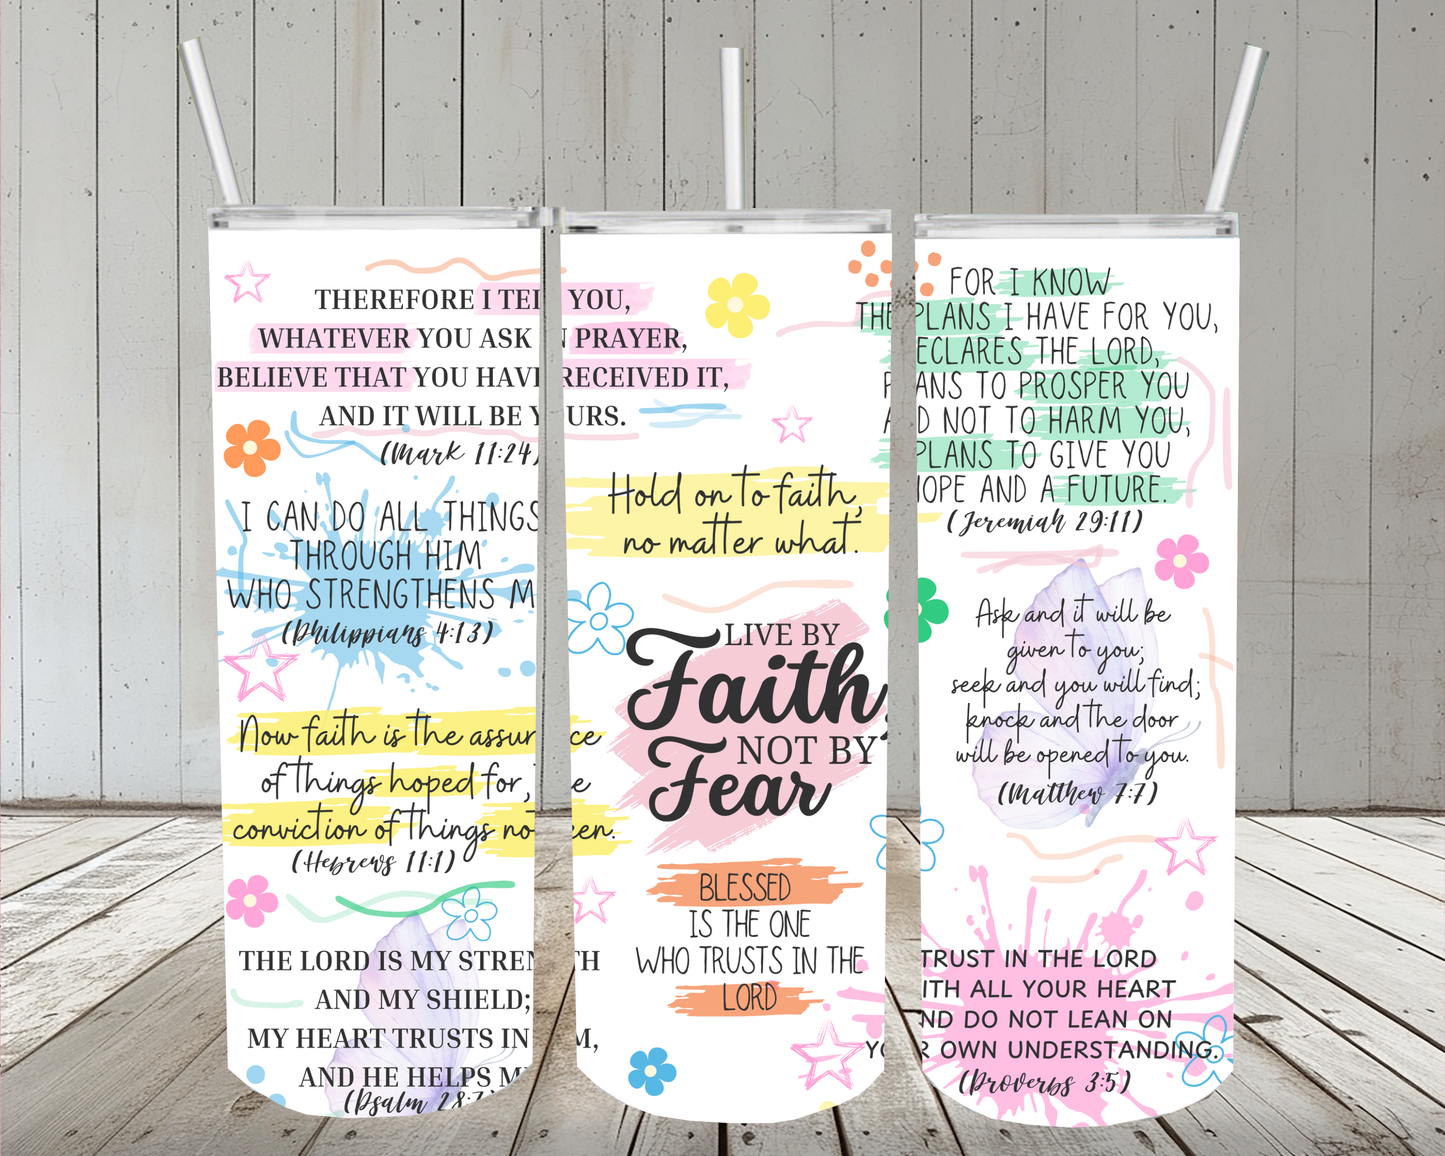 THEREFORE I TELL YOU,
WHATEVER YOU ASK IN PRAYER,
BELIEVE THAT YOU HAVE RECEIVED IT,
AND IT WILL BE YOURS.
(Mark 11:24)
I CAN DO ALL THINGS
THROUGH HIM
WHO STRENGTHENS M
(Philippians 4:13)
Now faith is the assurance
of things hoped for, the
conviction of things not seen.
(Hebrews 11:1)
THE LORD IS MY STRENGTH
AND MY SHIELD;
MY HEART TRUSTS IN HIM,
AND HE HELPS M
(Psalm 28:7)
Hold on to faith,
no matter what.
LIVE BY
Faith,
NOT BY
Fear
BLESSED
IS THE ONE
WHO TRUSTS IN THE
LORD
FOR I KNOW
THE PLANS I HAVE FOR YOU,
DECLARES THE LORD,
PLANS TO PROSPER YOU
AND NOT TO HARM YOU,
PLANS TO GIVE YOU
HOPE AND A FUTURE.
(Jeremiah 29:11)
Ask and it will be
given to you;
seek and you will find;
knock and the door
will be opened to you.
(Matthew 7:7)
TRUST IN THE LORD
WITH ALL YOUR HEART
AND DO NOT LEAN ON
YOUR OWN UNDERSTANDING.
(Proverbs 3:5)